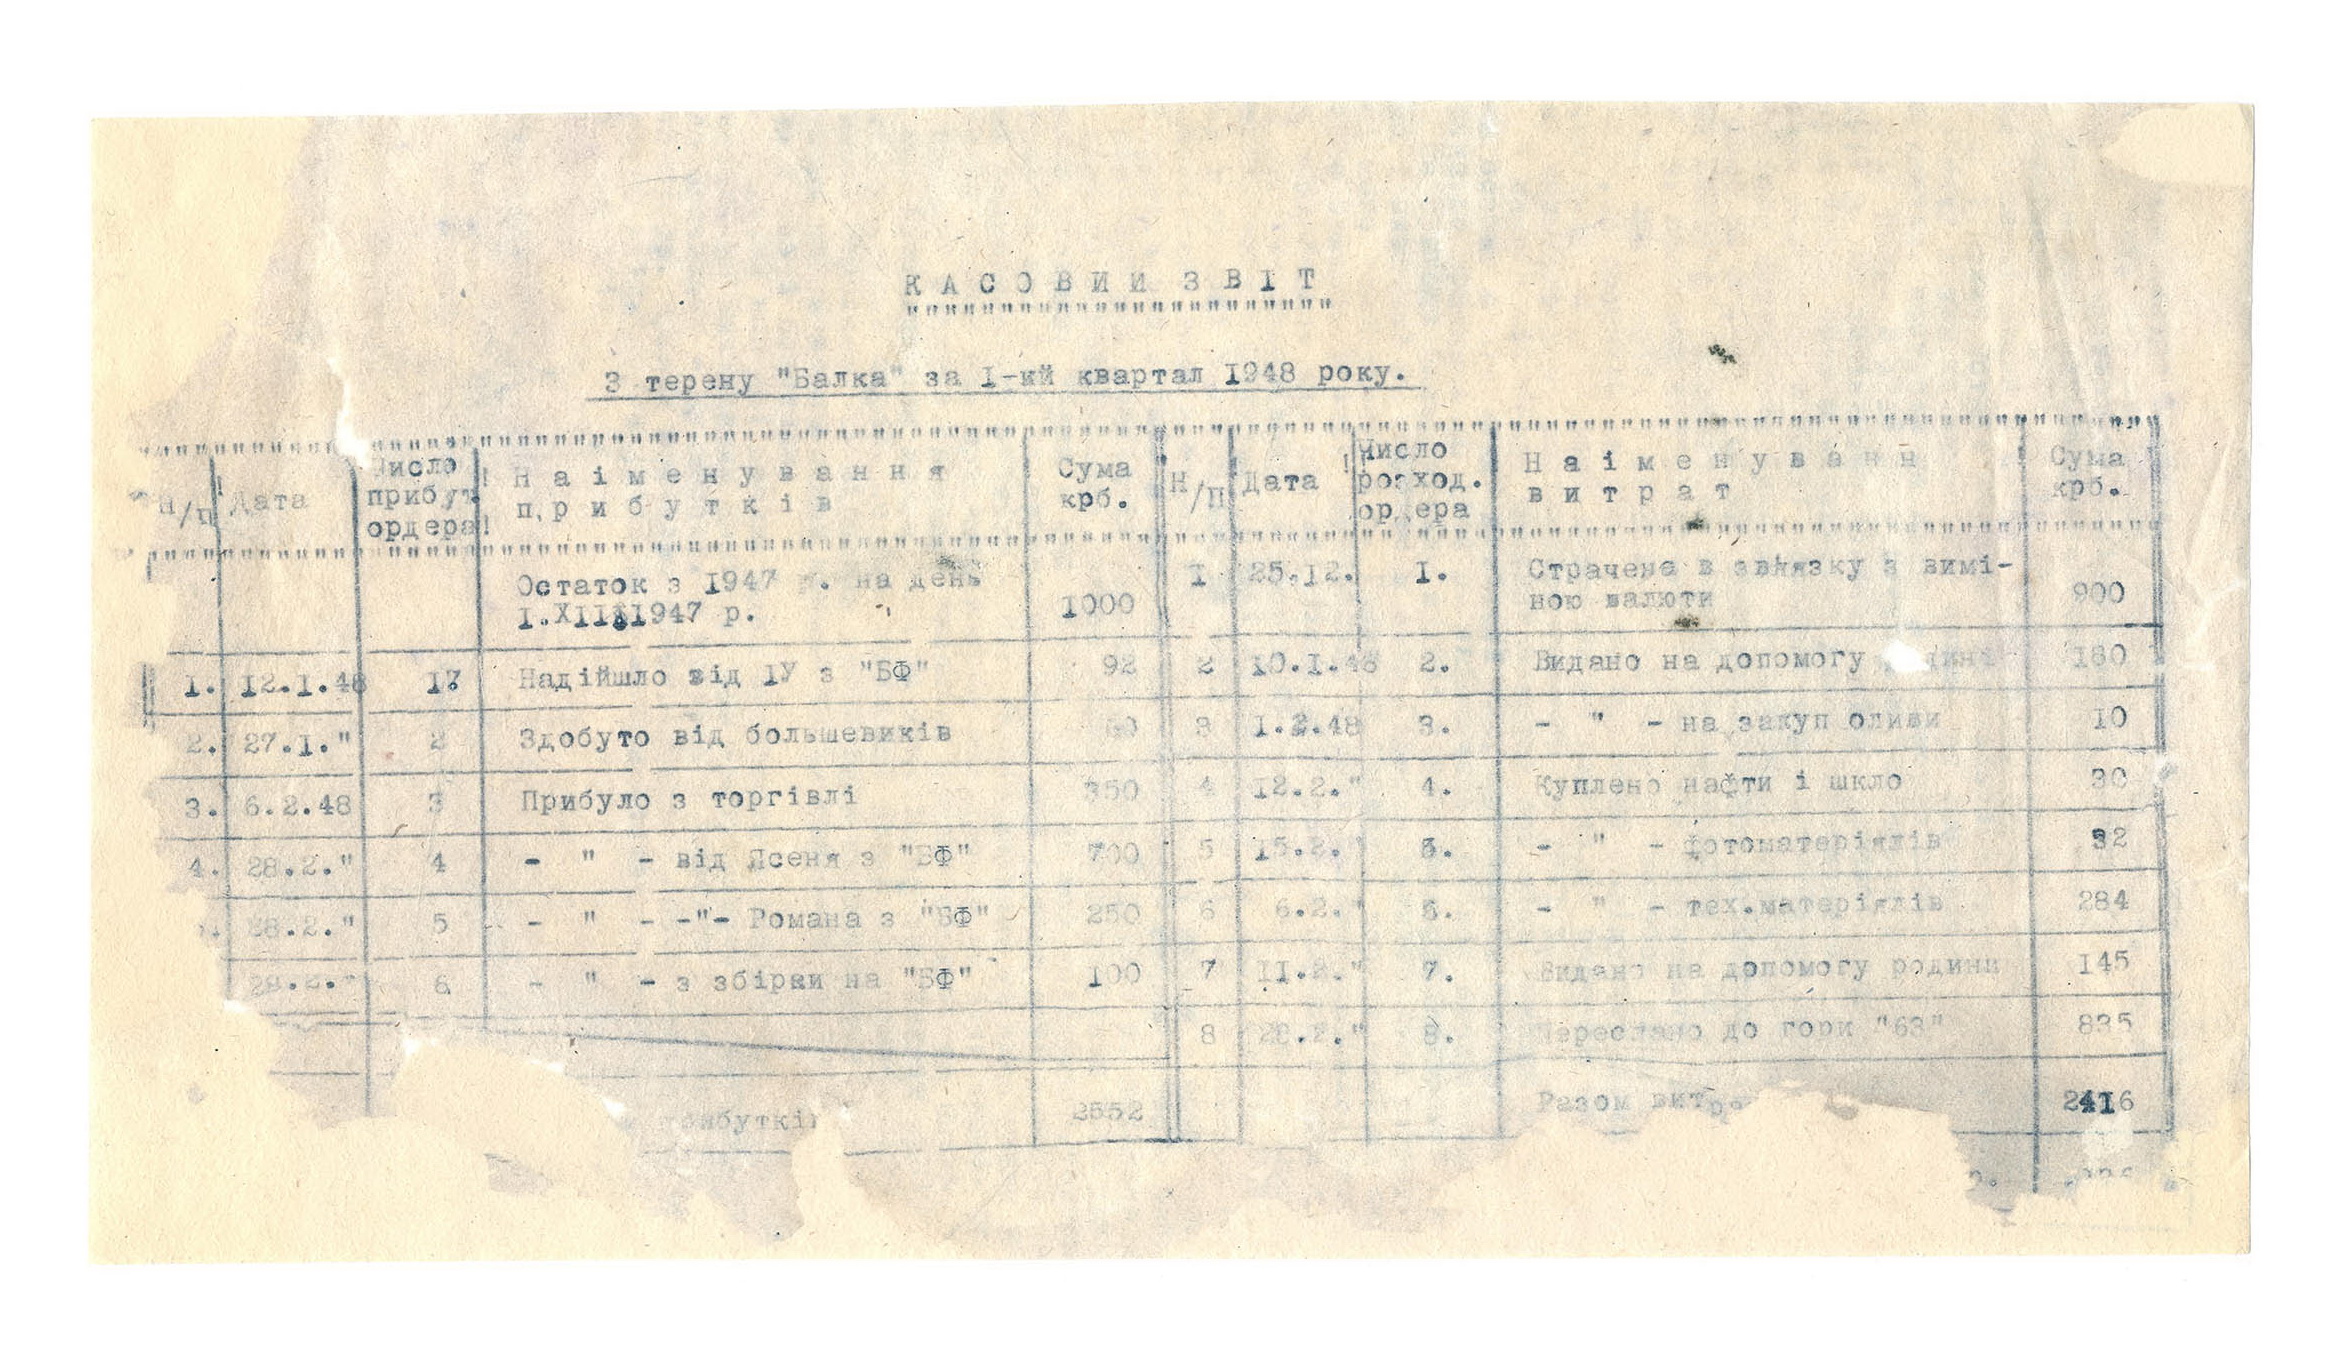 КАСОВИЙ ЗВІТ
З терену "Балка" за I-ий квартал 1948 року.
Н/п Дата Число прибут. ордера Наіменування прибутків Сума крб. Н/п Дата Число розход. ордера Наіменуванн витрат Сума крб.
Остаток з 1947 р. на день 1 25.12. 1. Страчено в звязку з вимі-
I.XII.1947 р. 1000 ною валюти 900
1. 12.1.48 1 Надійшло від ІУ з "БФ" 92 2 10.1.48 2. Видано на допомогу 180
2. 27.1." 2 Здобуто від большевиків 3 1.2.48 3. - " - на закуп оливи 10
3. 6.2.48 3 Прибуло з торгівлі 350 4 12.2." 4. Куплено нафти і шкло 30
4. 28.2." 4 - " - від Ясеня з "БФ" 700 5 15.2." 5. - " - фотоматеріялів 32
28.2." 5 - " - -"- Романа з "БФ" 250 6 6.2." - " - тех.матеріялів 284
28.2." 6 - " - з збірки на "БФ" 100 7 11.2." 7. Видано на допомогу родини 145
8 28.2." 8. Переслано до гори "63" 835
2552 Разом 2416